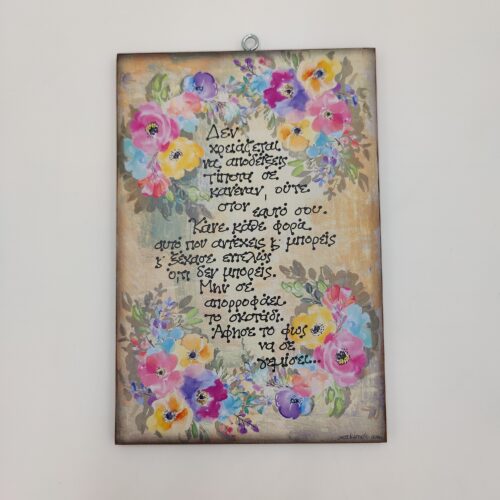 Δεν
χρειάζεται
να αποδείξεις
τίποτα σε
κανέναν, ούτε
στον εαυτό σου.
Κάνε κάθε φορά
αυτό που αντέχεις κ' μπορείς
κ' ξέχασε εντελώς
ό,τι δεν μπορείς.
Μην σε
απορροφάει
το σκοτάδι.
Άφησε το φως
να σε
γεμίσει...